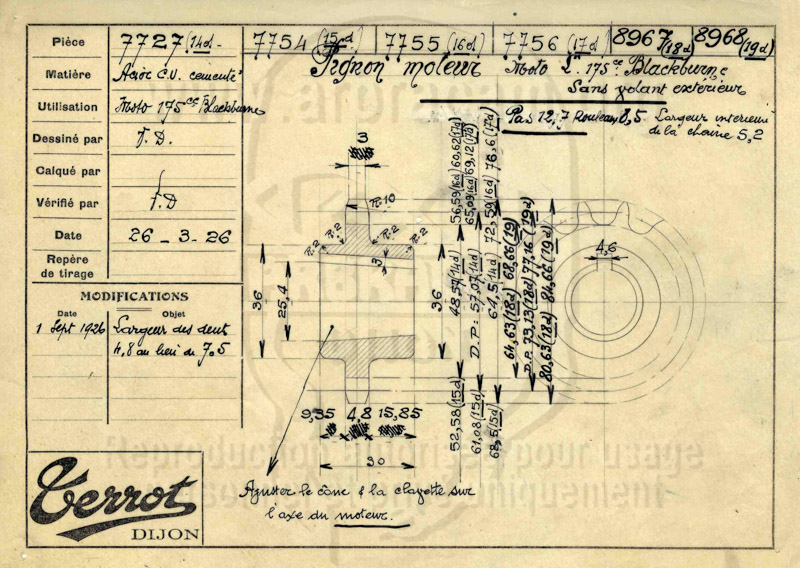 Pièce
7727 (14d)
7754 (15d)
7755 (16d)
7756 (17d)
8967 (18d)
8968 (19d)
Pignon moteur Moto L. 175cc Blackburne
Sans volant extérieur
Pas 12,7 Rouleau 8,5 Largeur intérieure
de la chaine 5,2
Matière
Acier C.V. cementé
Utilisation
Moto 175cc Blackburne
Dessiné par
F. D.
Calqué par
Vérifié par
F. D
Date
26 - 3 - 26
Repère
de tirage
MODIFICATIONS
Date
Objet
1 Sept 1926
Largeur des dents
4,8 au lieu de 7,5
3
R.10
R.2
R.2
R.2
R.2
3
36
25,4
36
9,35
4,8
15,85
30
56,59 (16d) 60,62 (17d)
65,09 (16d) 69,12 (17d)
72,59 (16d) 76,6 (17d)
48,57 (14d)
D.P: 57,07 (14d)
64,5 (14d)
52,58 (15d)
61,08 (15d)
68,5 (15d)
64,63 (18d) 68,66 (19d)
D.P. 73,13 (18d) 77,16 (19d)
80,63 (18d) 84,66 (19d)
4,6
Ajuster le cône & la clavette sur
l'axe du moteur.
Terrot
DIJON
Reproduction autorisée pour usage
uniquement